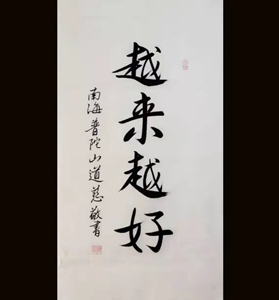 越来越好
南海普陀山道慈敬书